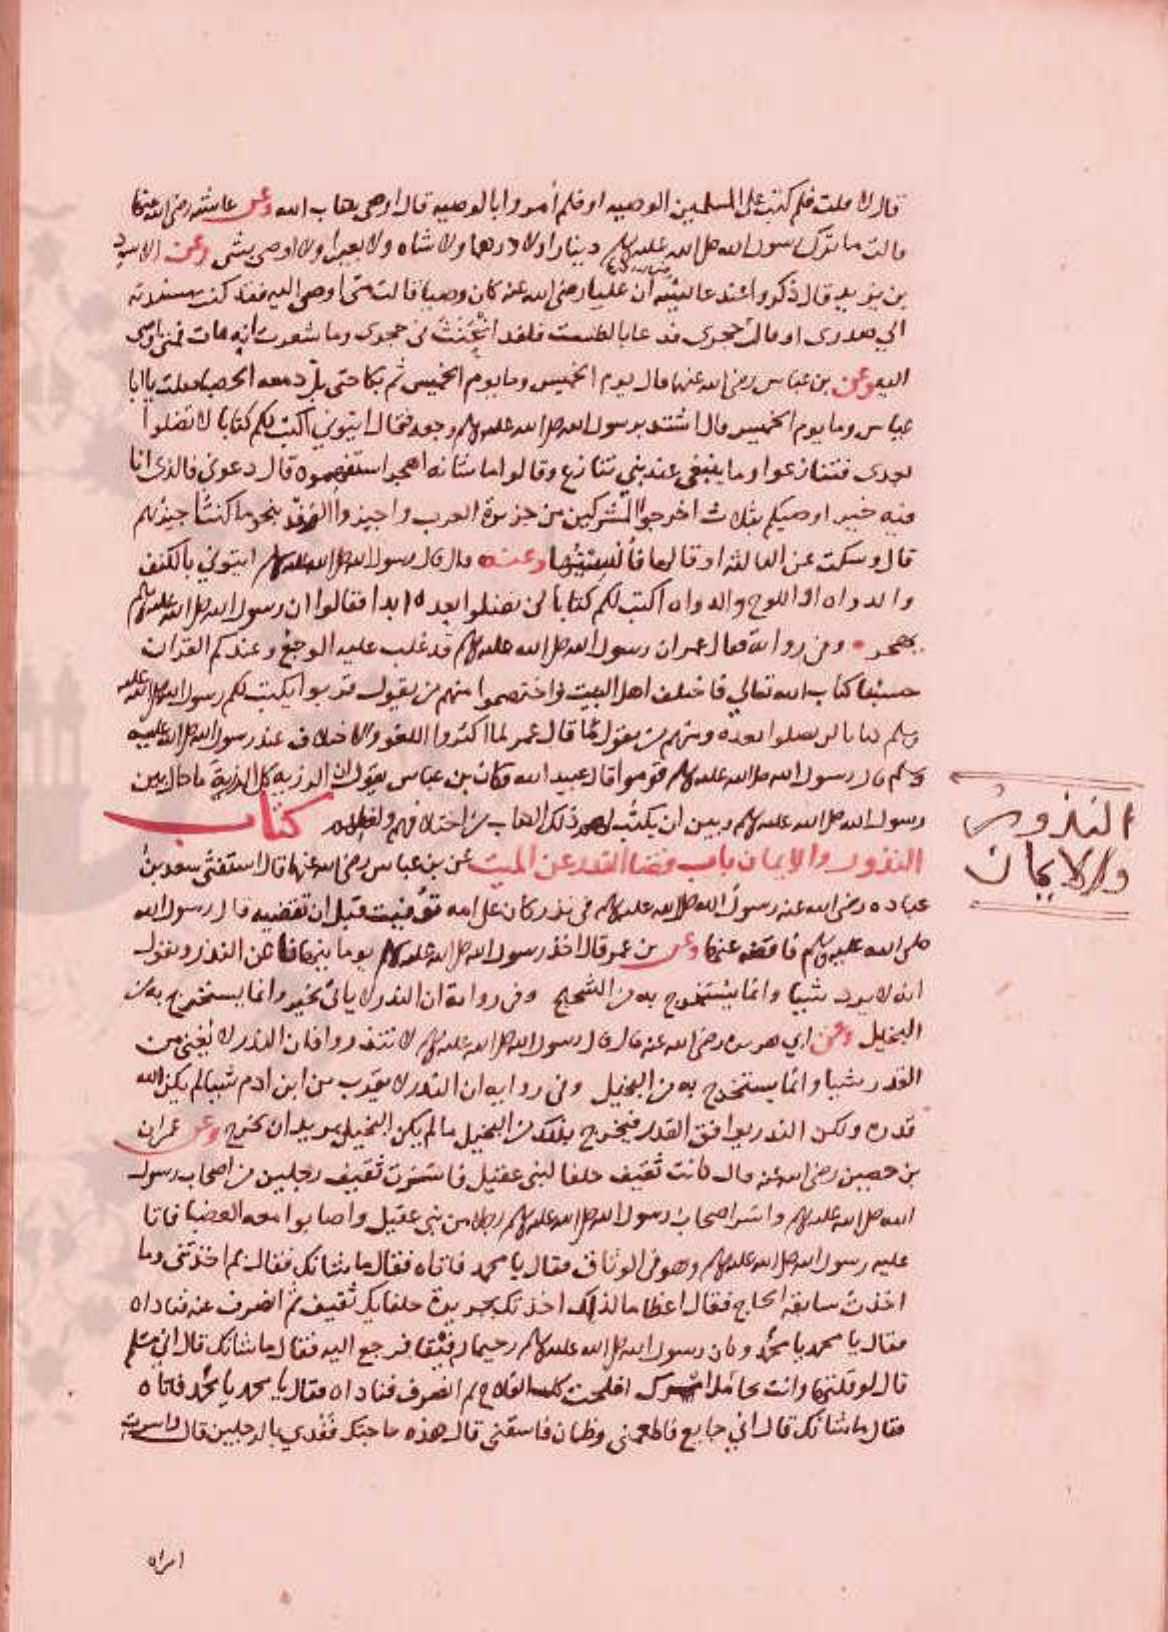 قال لا قلت فلم كتب على المسلمين الوصيه او فلم أمروا بالوصيه قال اوصى بكتاب الله وعن عائشه رضى الله عنها
قالت ما ترك رسول الله صلى الله عليه وسلم دينارا ولا درهما ولا شاه ولا بعيرا ولا اوصى بشى وعن الاسود
بن يزيد قال ذكروا عند عائشه ان عليا رضى الله عنه كان وصيا فقالت متى اوصى اليه فقد كنت مسندته
الي صدرى او قالت حجرى فدعا بالطست فلقد انخنث في حجرى وما شعرت انه مات فمتى اوصى
اليه وعن بن عباس رضى الله عنهما قال يوم الخميس وما يوم الخميس ثم بكا حتى بل دمعه الحصا فقلت يا ابا
عباس وما يوم الخميس قال اشتد برسول الله صلى الله عليه وسلم وجعه فقال ايتوني اكتب لكم كتابا لا تضلوا
بعدى فتنازعوا وما ينبغى عند نبي تنازع وقالوا ما شانه اهجر استفهموه قال دعونى فالذى انا
فيه خير اوصيكم بثلاث اخرجوا المشركين من جزيرة العرب واجيزوا الوفد بنحو ما كنت اجيزهم
قال وسكت عن الثالثه او قالها فأنسيتها وعنه قال قال رسول الله صلى الله عليه وسلم ايتوني بالكتف
والدواه او اللوح والدواه اكتب لكم كتابا لن تضلوا بعده ابدا فقالوا ان رسول الله صلى الله عليه وسلم
يهجر وفى روايه فقال عمر ان رسول الله صلى الله عليه وسلم قد غلب عليه الوجع وعندكم القران
حسبنا كتاب الله تعالي فاختلف اهل البيت فاختصموا منهم من يقول قربوا يكتب لكم رسول الله صلى الله عليه
وسلم كتابا لن تضلوا بعده ومنهم من يقول ما قال عمر لما اكثروا اللغو والاختلاف عند رسول الله صلى الله عليه
وسلم قال رسول الله صلى الله عليه وسلم قوموا قال عبيد الله فكان بن عباس يقول ان الرزيه كل الرزية ما حال بين
رسول الله صلى الله عليه وسلم وبين ان يكتب لهم ذلك الكتاب من اختلافهم ولغطهم كتاب
النذور والايمان باب قضا النذر عن الميت عن بن عباس رضى الله عنهما قال استفتى سعد بن
عباده رضى الله عنه رسول الله صلى الله عليه وسلم فى نذر كان على امه توفيت قبل ان تقضيه قال رسول الله
صلى الله عليه وسلم فاقضه عنها وعن بن عمر قال اخذ رسول الله صلى الله عليه وسلم يوما ينهانا عن النذر ويقول
انه لا يرد شيا وانما يستخرج به من الشحيح وفى روايه ان النذر لا ياتى بخير وانما يستخرج به من
البخيل وعن ابي هريره رضى الله عنه قال قال رسول الله صلى الله عليه وسلم لا تنذروا فان النذر لا يغنى من
القدر شيا وانما يستخرج به من البخيل وفى روايه ان النذر لا يقرب من ابن ادم شيا لم يكن الله
قدره ولكن النذر يوافق القدر فيخرج بذلك من البخيل ما لم يكن البخيل يريد ان يخرج وعن عمران
بن حصين رضى الله عنه قال كانت ثقيف حلفا لبنى عقيل فاسرت ثقيف رجلين من اصحاب رسول
الله صلى الله عليه وسلم واسر اصحاب رسول الله صلى الله عليه وسلم رجلا من بنى عقيل واصابوا معه العضبا فاتا
عليه رسول الله صلى الله عليه وسلم وهو فى الوثاق فقال يا محمد فاتاه فقال ما شانك فقال بم اخذتنى وما
اخذت سابقه الحاج فقال اعظاما لذلك اخذتك بجريرة حلفايك ثقيف ثم انصرف عنه فناداه
فقال يا محمد يا محمد وكان رسول الله صلى الله عليه وسلم رحيما رفيقا فرجع اليه فقال ما شانك قال انى مسلم
قال لو قلتها وانت تملك امرك افلحت كل الفلاح ثم انصرف فناداه فقال يا محمد يا محمد فاتاه
فقال ما شانك قال اني جايع فاطعمنى وظمان فاسقنى قال هذه حاجتك ففدي بالرجلين قال واسرت
النذور
والايمان
امراه